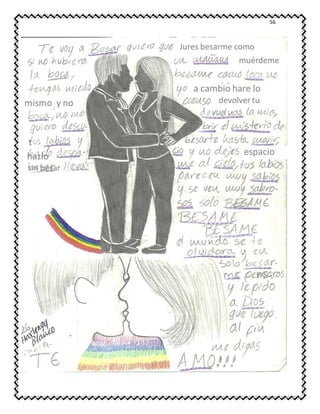 56
Te voy a Besar quiero que Jures besarme como
si no hubiera un mañana muérdeme
la boca, besame como loca no
tengas miedo yo a cambio hare lo
mismo y no pienso devolver tu
boca, no mo devuelvas la mia,
quiero descubrir el misterio de
tus labios y besarte hasta morir,
Hazlo y no dejes espacio
sin besar llevame al cielo, tus labios
parecen muy sabios
y se ven muy sabrosos
solo BESAME
BESAME
BESAME
el mundo se te
olvidara y en
solo besarme
pensaras
y le pido
a Dios
que luego
al fin
me digas
TE AMO!!!